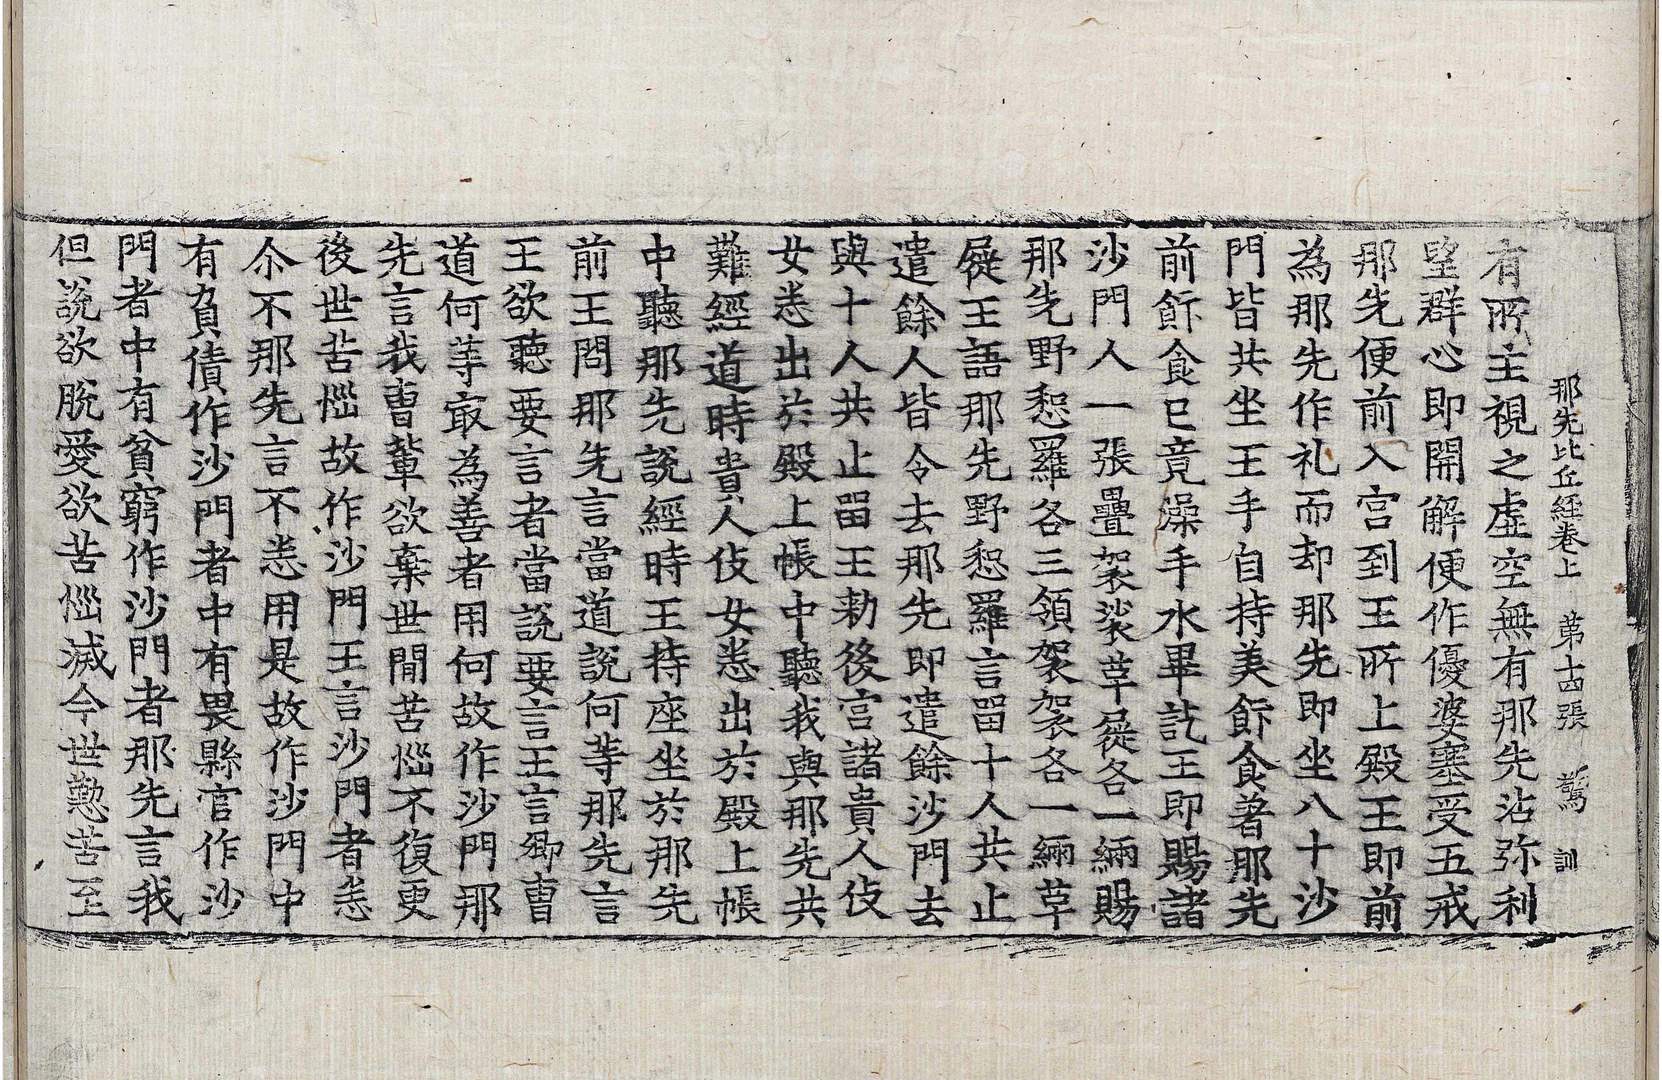 那先比丘経卷上　第十四張　驚　訓
有所主視之虛空無有那先沾弥利
望群心即開解便作優婆塞受五戒
那先便前入宫到王所上殿王即前
為那先作礼而却那先即坐八十沙
門皆共坐王手自持美飰食著那先
前飰食已竟澡手水畢訖王即賜諸
沙門人一張疊袈裟草屣各一緉賜
那先野惒羅各三領袈裟各一緉草
屣王語那先野惒羅言留十人共止
遣餘人皆令去那先即遣餘沙門去
與十人共止留王勑後宫諸貴人伎
女悉出於殿上帳中聽我與那先共
難經道時貴人伎女悉出於殿上帳
中聽那先說經時王持座坐於那先
前王問那先言當道說何等那先言
王欲聽要言者當說要言王言卿曹
道何等㝡為善者用何故作沙門那
先言我曹軰欲棄世間苦惱不復更
後世苦惱故作沙門王言沙門者悉
尒不那先言不悉用是故作沙門中
有負債作沙門者中有畏縣官作沙
門者中有貧窮作沙門者那先言我
但說欲脫愛欲苦惱滅今世懃苦至